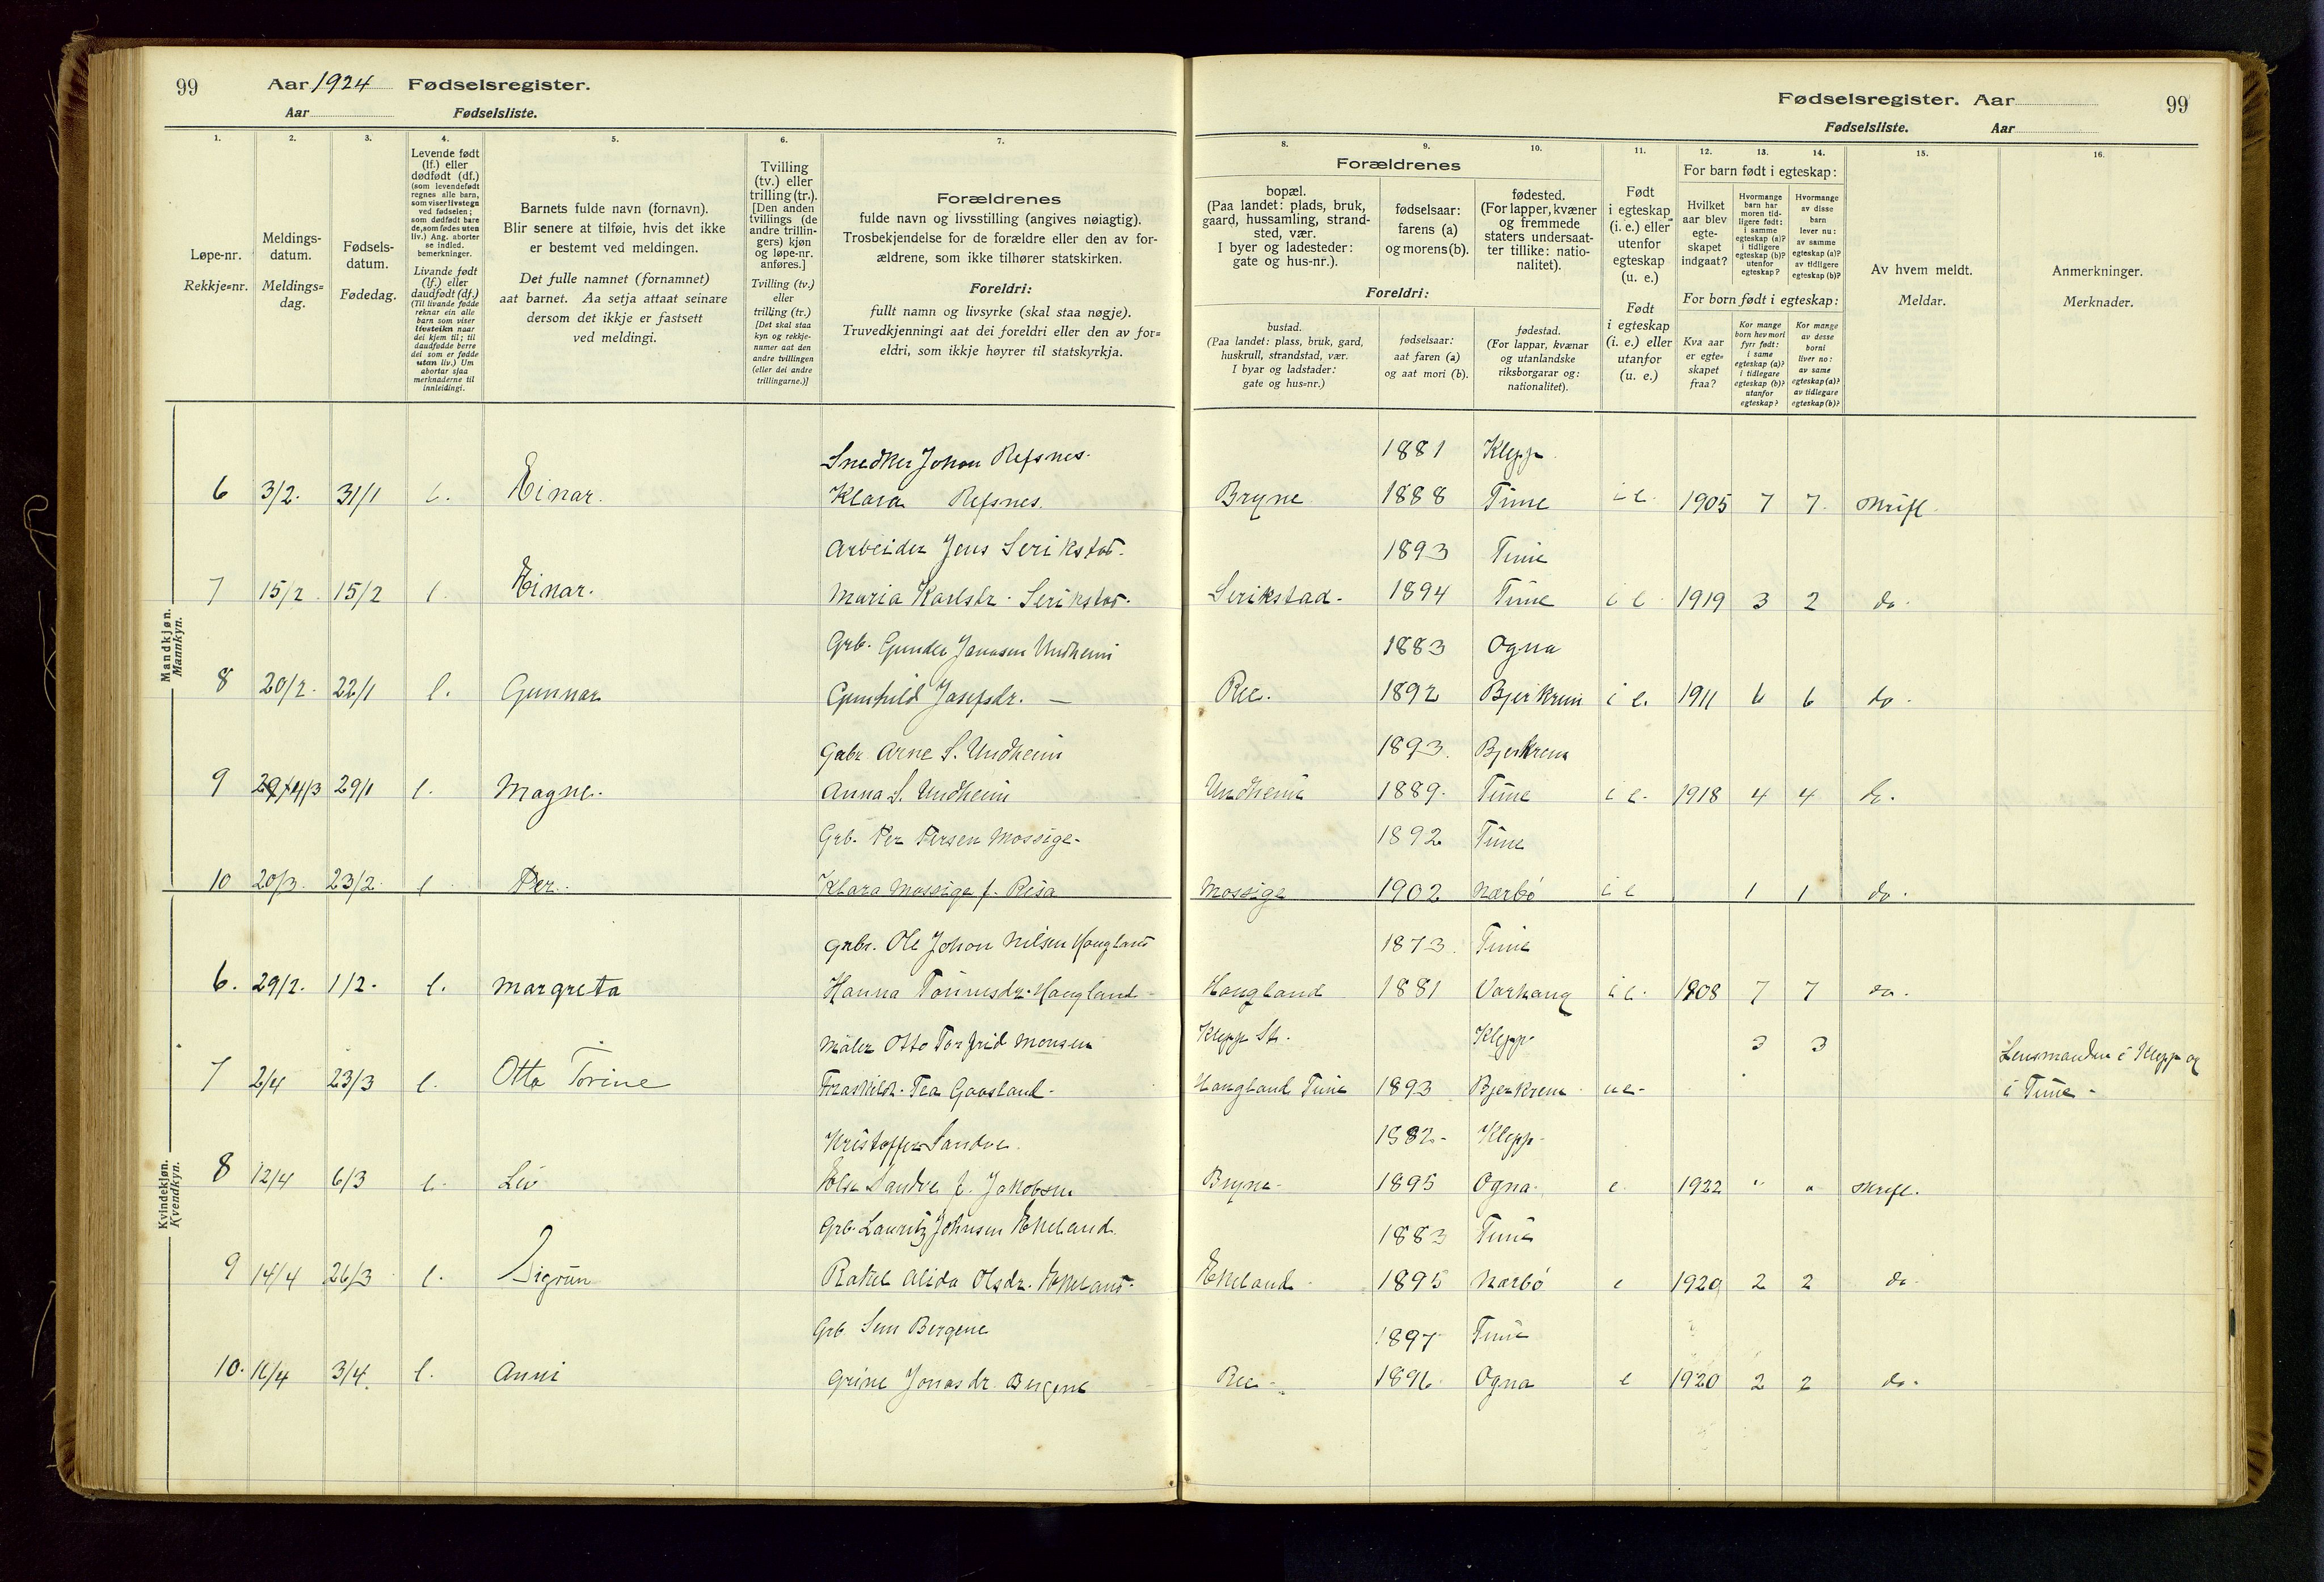 99 Aar 1924 Fødselsregister.
Aar Fødselsliste.
Fødselsregister. Aar 99
Fødselsliste. Aar
1. 2. 3. 4. 5. 6. 7.
8. 9. 10. 11. 12. 13. 14. 15. 16.
Løpe-nr.
Rekkje=nr.
Meldings-
datum.
Meldings=
dag.
Fødsels-
datum.
Fødedag.
Levende født
(lf.) eller
dødfødt (df.)
(som levendefødt
regnes alle barn,
som viser livstegn
ved fødselen;
som dødfødt bare
de, som fødes uten
liv.) Ang. aborter
se indled.
bemerkninger.
Livande født
(lf.) eller
daudfødt (df.)
(Til livande fødde
reknar ein alle
barn som viser
livsteikn naar
dei kjem til; til
daudfødde berre
dei som er fødde
utan liv.) Um
abortar sjaa
merknaderne til
innleidingi.
Barnets fulde navn (fornavn).
Blir senere at tilføie, hvis det ikke
er bestemt ved meldingen.
Det fulle namnet (fornamnet)
aat barnet. Aa setja attaat seinare
dersom det ikkje er fastsett
ved meldingi.
Tvilling
(tv.) eller
trilling (tr.).
[Den anden
tvillings (de
andre trillin-
gers) kjøn
og løpe-nr.
anføres.]
Tvilling (tv.)
eller
trilling (tr.)
[Det skal staa
kyn og rekkje-
numer aat den
andre tvillingen
(eller dei andre
trillingarne.)]
Forældrenes
fulde navn og livsstilling (angives nøiagtig).
Trosbekjendelse for de forældre eller den av for-
ældrene, som ikke tilhører statskirken.
Foreldri:
fullt namn og livsyrke (skal staa nøgje).
Truvedkjenningi aat dei foreldri eller den av for=
eldri, som ikkje høyrer til statskyrkja.
Forældrenes
bopæl.
(Paa landet: plads, bruk,
gaard, hussamling, strand-
sted, vær.
I byer og ladesteder:
gate og hus-nr.).
fødselsaar:
farens (a)
og morens (b).
fødested.
(For lapper, kvæner
og fremmede
staters undersaat-
ter tillike: natio-
nalitet).
Foreldri:
bustad.
(Paa landet: plass, bruk, gard,
huskrull, strandstad, vær.
I byar og ladstader:
gate og hus=nr.)
fødselsaar:
aat faren (a)
og aat mori (b).
fødestad.
(For lappar, kvænar
og utanlandske
riksborgarar og:
nationalitet).
Født
i egteskap
(i. e.) eller
utenfor
egteskap
(u. e.)
Født
i egteskap
(i. e.) eller
utanfor
(u. e.)
For barn født i egteskap:
Hvilket
aar blev
egte-
skapet
indgaat?
Hvormange
barn har
moren tid-
ligere født:
i samme
egteskap (a)?
i tidligere
egteskap (b)?
utenfor
egteskap?
Hvormange
av disse
barn
lever nu:
av samme
egteskap (a)?
av tidligere
egteskap (b)?
For born født i egteskap:
Kva aar
er egte=
skapet
fraa?
Kor mange
born hev mori
fyrr født:
i same
egteskap (a)?
i tidlegare
egteskap (b)?
utanfor
egteskap?
Kor mange
av desse
borni
liver no:
av same
egteskap (a)?
av tidlegare
egteskap (b)?
Av hvem meldt.
Meldar.
Anmerkninger.
Merknader.
Mandkjøn.
Mannkyn.
Snedker Johan Refsnes. 1881 Klepp
6 3/2. 31/1 l. Einar. Klara Refsnes. Bryne 1888 Time i e. 1905 7 7. skriftl.
Arbeider Jens Serikstad. 1893 Time
7 15/2 15/2 l. Einar. Maria Karlsdr. Serikstad. Serikstad. 1894 Time i e 1919 3 2 do.
Grb. Gunder Jonassen Undheim 1883 Ogna
8 20/2. 22/1 l. Gunnar Gunhild Josefsdr. — Ree. 1892 Bjerkrem i e. 1911 6 6 do.
Gabr. Arne S. Undheim 1893. Bjerkrem
9 4/3 29/1 l. Magne. Anna S. Undheim Undheim 1889. Time i e. 1918 4 4 do.
Grb. Per Persen Mossige. 1892 Time
10 20/3. 23/2. l Per. Klara Mossige f. Risa Mossige 1902 Nærbö i e 1 1 do.
Kvindekjøn.
Kvendkyn.
Gabr. Ole Johan Nilsen Haugland 1873. Time
6. 29/2. 1/2. l. Margreta Hanna Tönnesdr. Haugland Haugland 1881 Varhaug i e. 1908 7 7 do.
Maler Otto Torfrid Monsen Klepp St. Klepp. 3 3 Lensmanden i Klepp og
7 2/4 23/3 l. Otta Torine Tea Gaasland. Haugland Time 1893 Bjerkrem u e. i Time.
Kristoffer Sandve. 1882. Klepp.
8 12/4 6/3 l. Liv Else Sandve f. Jakobsen Bryne. 1895 Ogna. e. 1922 " " skriftl.
Grb. Lauritz Johnsen Ekeland. 1883 Time
9 14/4 26/3 l. Sigrun Rakel Alida Olsdr. Ekeland. Ekeland 1895 Nærbö e 1920 2 2 do.
Grb. Sem Bergene 1897 Time
10. 11/4 3/4. l. Anni Grine Jonasdr. Bergene Ree. 1896. Ogna e 1920 2 2 do.